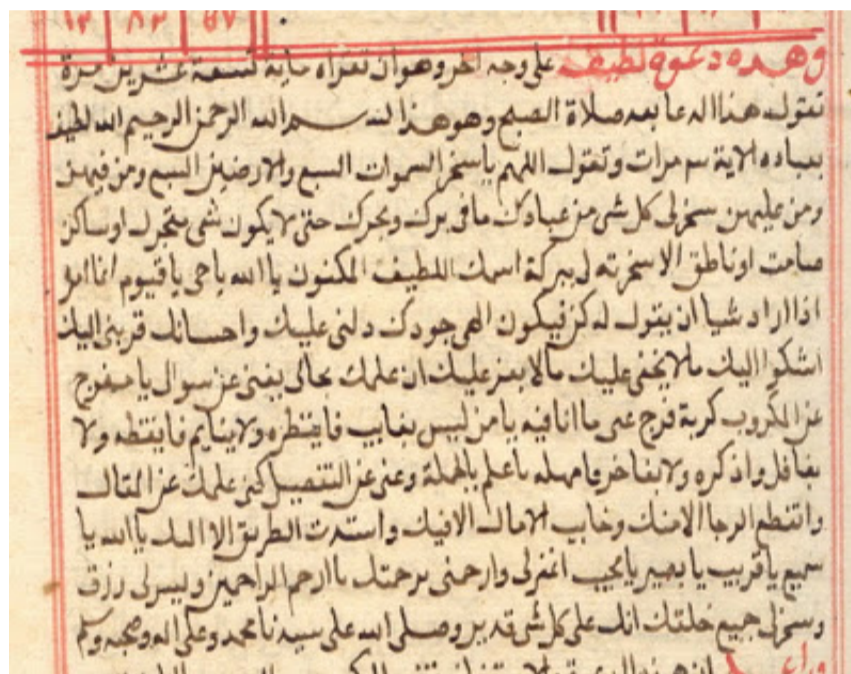 ٦٧ ٨٣ ١٣
وهذه دعوة لطيفة على وجه اخر وهو ان تقراه ماية تسعة عشرين مرة
تقول هذا الدعا بعد صلاة الصبح وهو هذا بسم الله الرحمن الرحيم الله لطيف
بعباده الاية مرات وتقول اللهم يا مسخر السموات السبع والارضين السبع ومن فيهن
ومن عليهن سخر لى كل شى من عبادك مافى برك وبحرك حتى لا يكون شى متحرك او ساكن
صامت او ناطق الا سخرته لى ببركة اسمك اللطيف المكنون يا الله يا حى يا قيوم انما امره
اذا اراد شيا ان يقول له كن فيكون الهى جودك دلنى عليك واحسانك قربنى اليك
اشكوا اليك ما لا يخفى عليك ما لا يعسر عليك ان علمك بحالى يغنى عن سوال يا مفرج
عن المكروب كربة فرج عنى ما انا فيه يا من ليس بغايب فانتظره ولا بنايم فايقظه ولا
بغافل واذكره ولا بعاجز فامهله ياعلم بالجملة وغنى عن التفصيل كفى علمك عن المقال
وانقطع الرجا الا منك وخاب الامال الا فيك واستدت الطريق الا اليك يا الله يا
سميع يا قريب يا بصير يا مجيب اغفر لى وارحمنى برحمتك يا ارحم الراحمين ويسر لى رزق
وسخر لى جميع خلقك انك على كل شى قدير وصلى الله على سيدنا محمد وعلى اله وصحبه وسلم